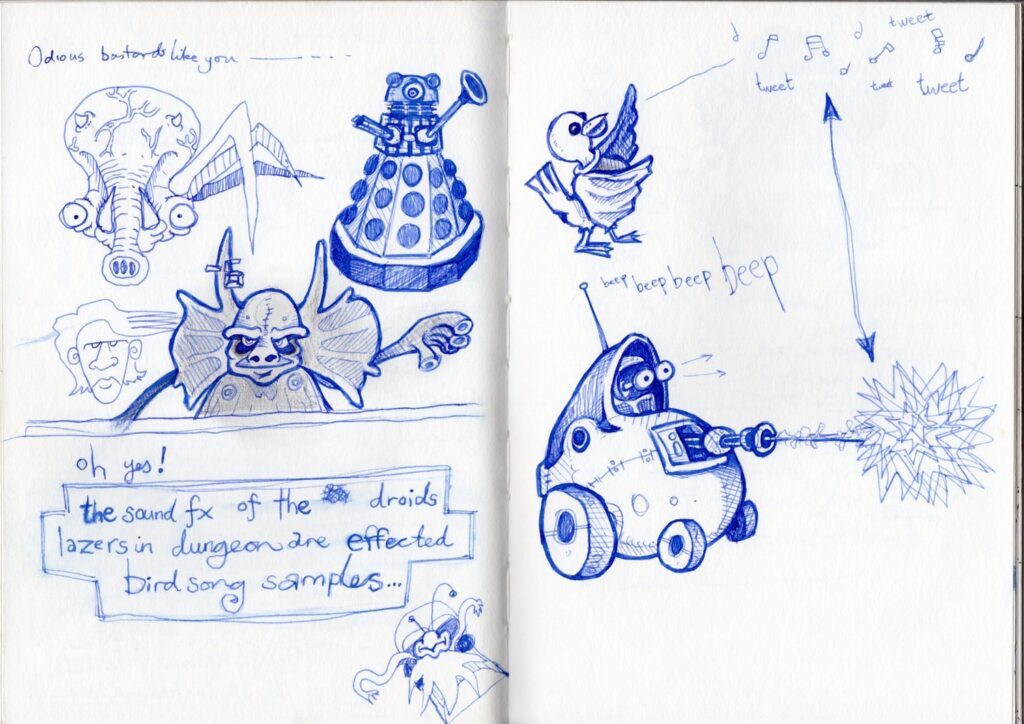 Odious bastards like you
oh yes!
the sound fx of the droids
lazers in dungeon are effected
birdsong samples...
tweet
tweet tweet tweet
beep beep beep beep